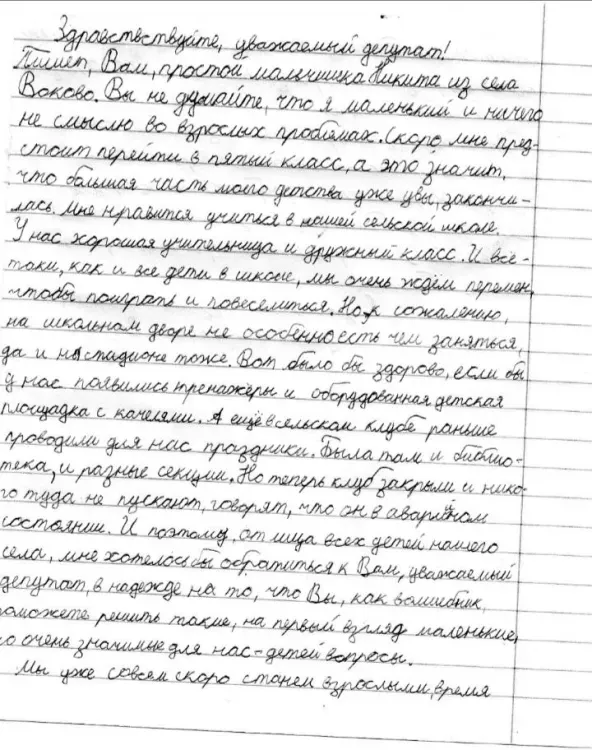 Здравствствуйте, уважаемый депутат!
Пишет, Вам, простой мальчишка Никита из села
Воково. Вы не думайте, что я маленький и ничего
не смыслю во взрослых проблемах. Скоро мне пред-
стоит перейти в пятый класс, а это значит,
что большая часть моего детства уже увы, закончи-
лась. Мне нравится учиться в нашей сельской школе.
У нас хорошая учительница и дружный класс. И всё-
таки, как и все дети в школе, мы очень ждём перемен,
чтобы поиграть и повеселиться. Но, к сожалению,
на школьном дворе не особенно есть чем заняться,
да и на стадионе тоже. Вот было бы здорово, если бы
у нас появились тренажёры и оборудованная детская
площадка с качелями. А ещё в сельском клубе раньше
проводили для нас праздники. Была там и библио-
тека, и разные секции. Но теперь клуб закрыли и нико-
го туда не пускают, говорят, что он в аварийном
состоянии. И поэтому, от лица всех детей нашего
села, мне хотелось бы обратиться к Вам, уважаемый
депутат, в надежде на то, что Вы, как волшебник,
поможете решить такие, на первый взгляд маленькие,
но очень значимые для нас - детей вопросы.
Мы уже совсем скоро станем взрослыми, время